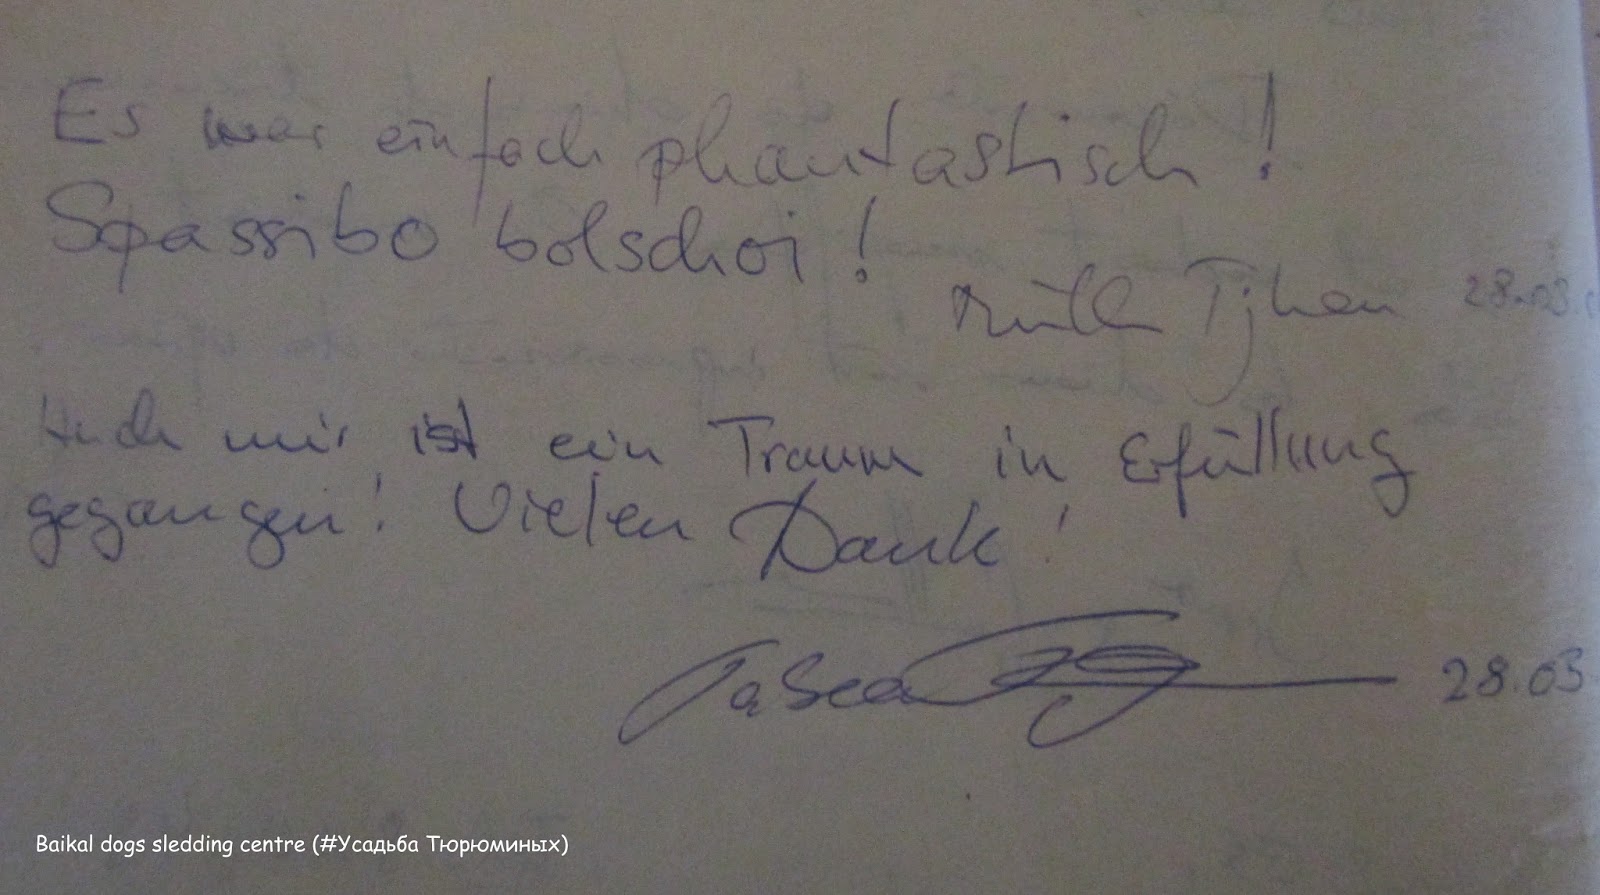 Es war einfach phantastisch!
Spassibo bolschoi!
28.03
Auch mir ist ein Traum in Erfüllung
gegangen! Vielen Dank!
28.03
Baikal dogs sledding centre (#Усадьба Тюрюминых)